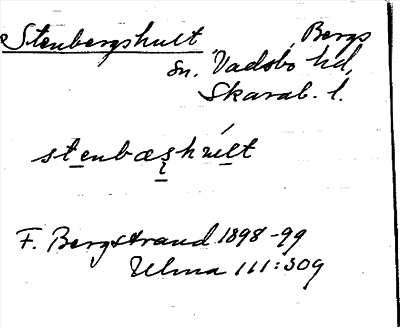 Stenbergshult Bergs
sn. Vadsbo hd,
Skarab. l.
stenbæshult
F. Bergstrand 1898-99
Ulma 111:309